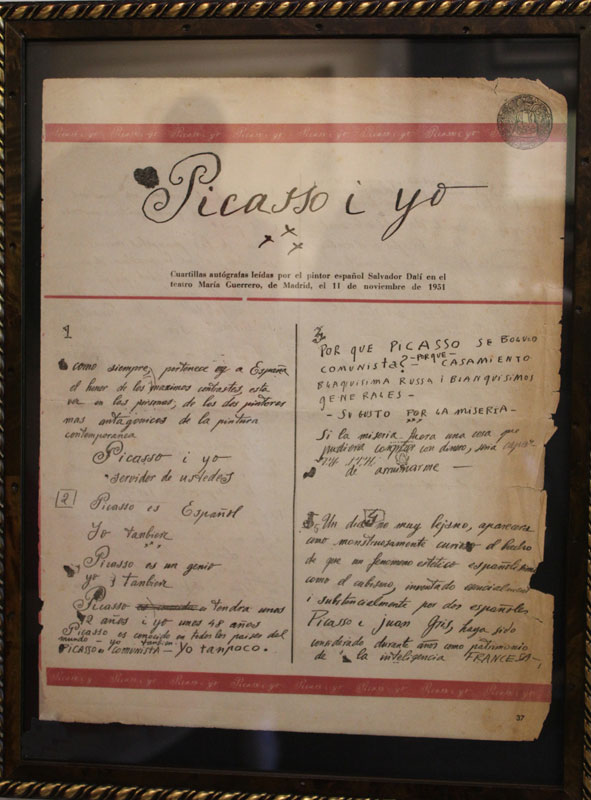 Picasso i yo
Cuartillas autógrafas leídas por el pintor español Salvador Dalí en el
teatro María Guerrero, de Madrid, el 11 de noviembre de 1951
1
como siempre, pertenece a España
el honor de los maximos contrastes, esta
vez en las personas, de los dos pintores
mas antagonicos de la pintura
contemporanea
Picasso i yo
servidor de ustedes
2
Picasso es Español
Yo tanbien
Picasso es un genio
yo tanbien
Picasso tendra unos
72 años i yo unos 48 años
Picasso es conocido en todos los paises del
mundo - yo tanbien
Picasso es comunista - Yo tanpoco.
3
POR QUE PICASSO SE BOLVIO
COMUNISTA? - PORQUE -
CASAMIENTO
BLAQUISIMA RUSSA I BIANQUISIMOS
GENERALES -
- SU GUSTO POR LA MISERIA -
Si la miseria fuera una cosa que
pudiera comprar con dinero, seria capaz
de arruinarme -
5 Un dia no muy lejano, aparecera
como monstruosamente curioso el hecho
de que un fenomeno estetico españolisimo
como el cubismo, inventado esencialmente
i substancialmente por dos españoles
Picasso e Juan Gris, haya sido
considerado durante años como patrimonio
de la inteligencia FRANCESA -
37